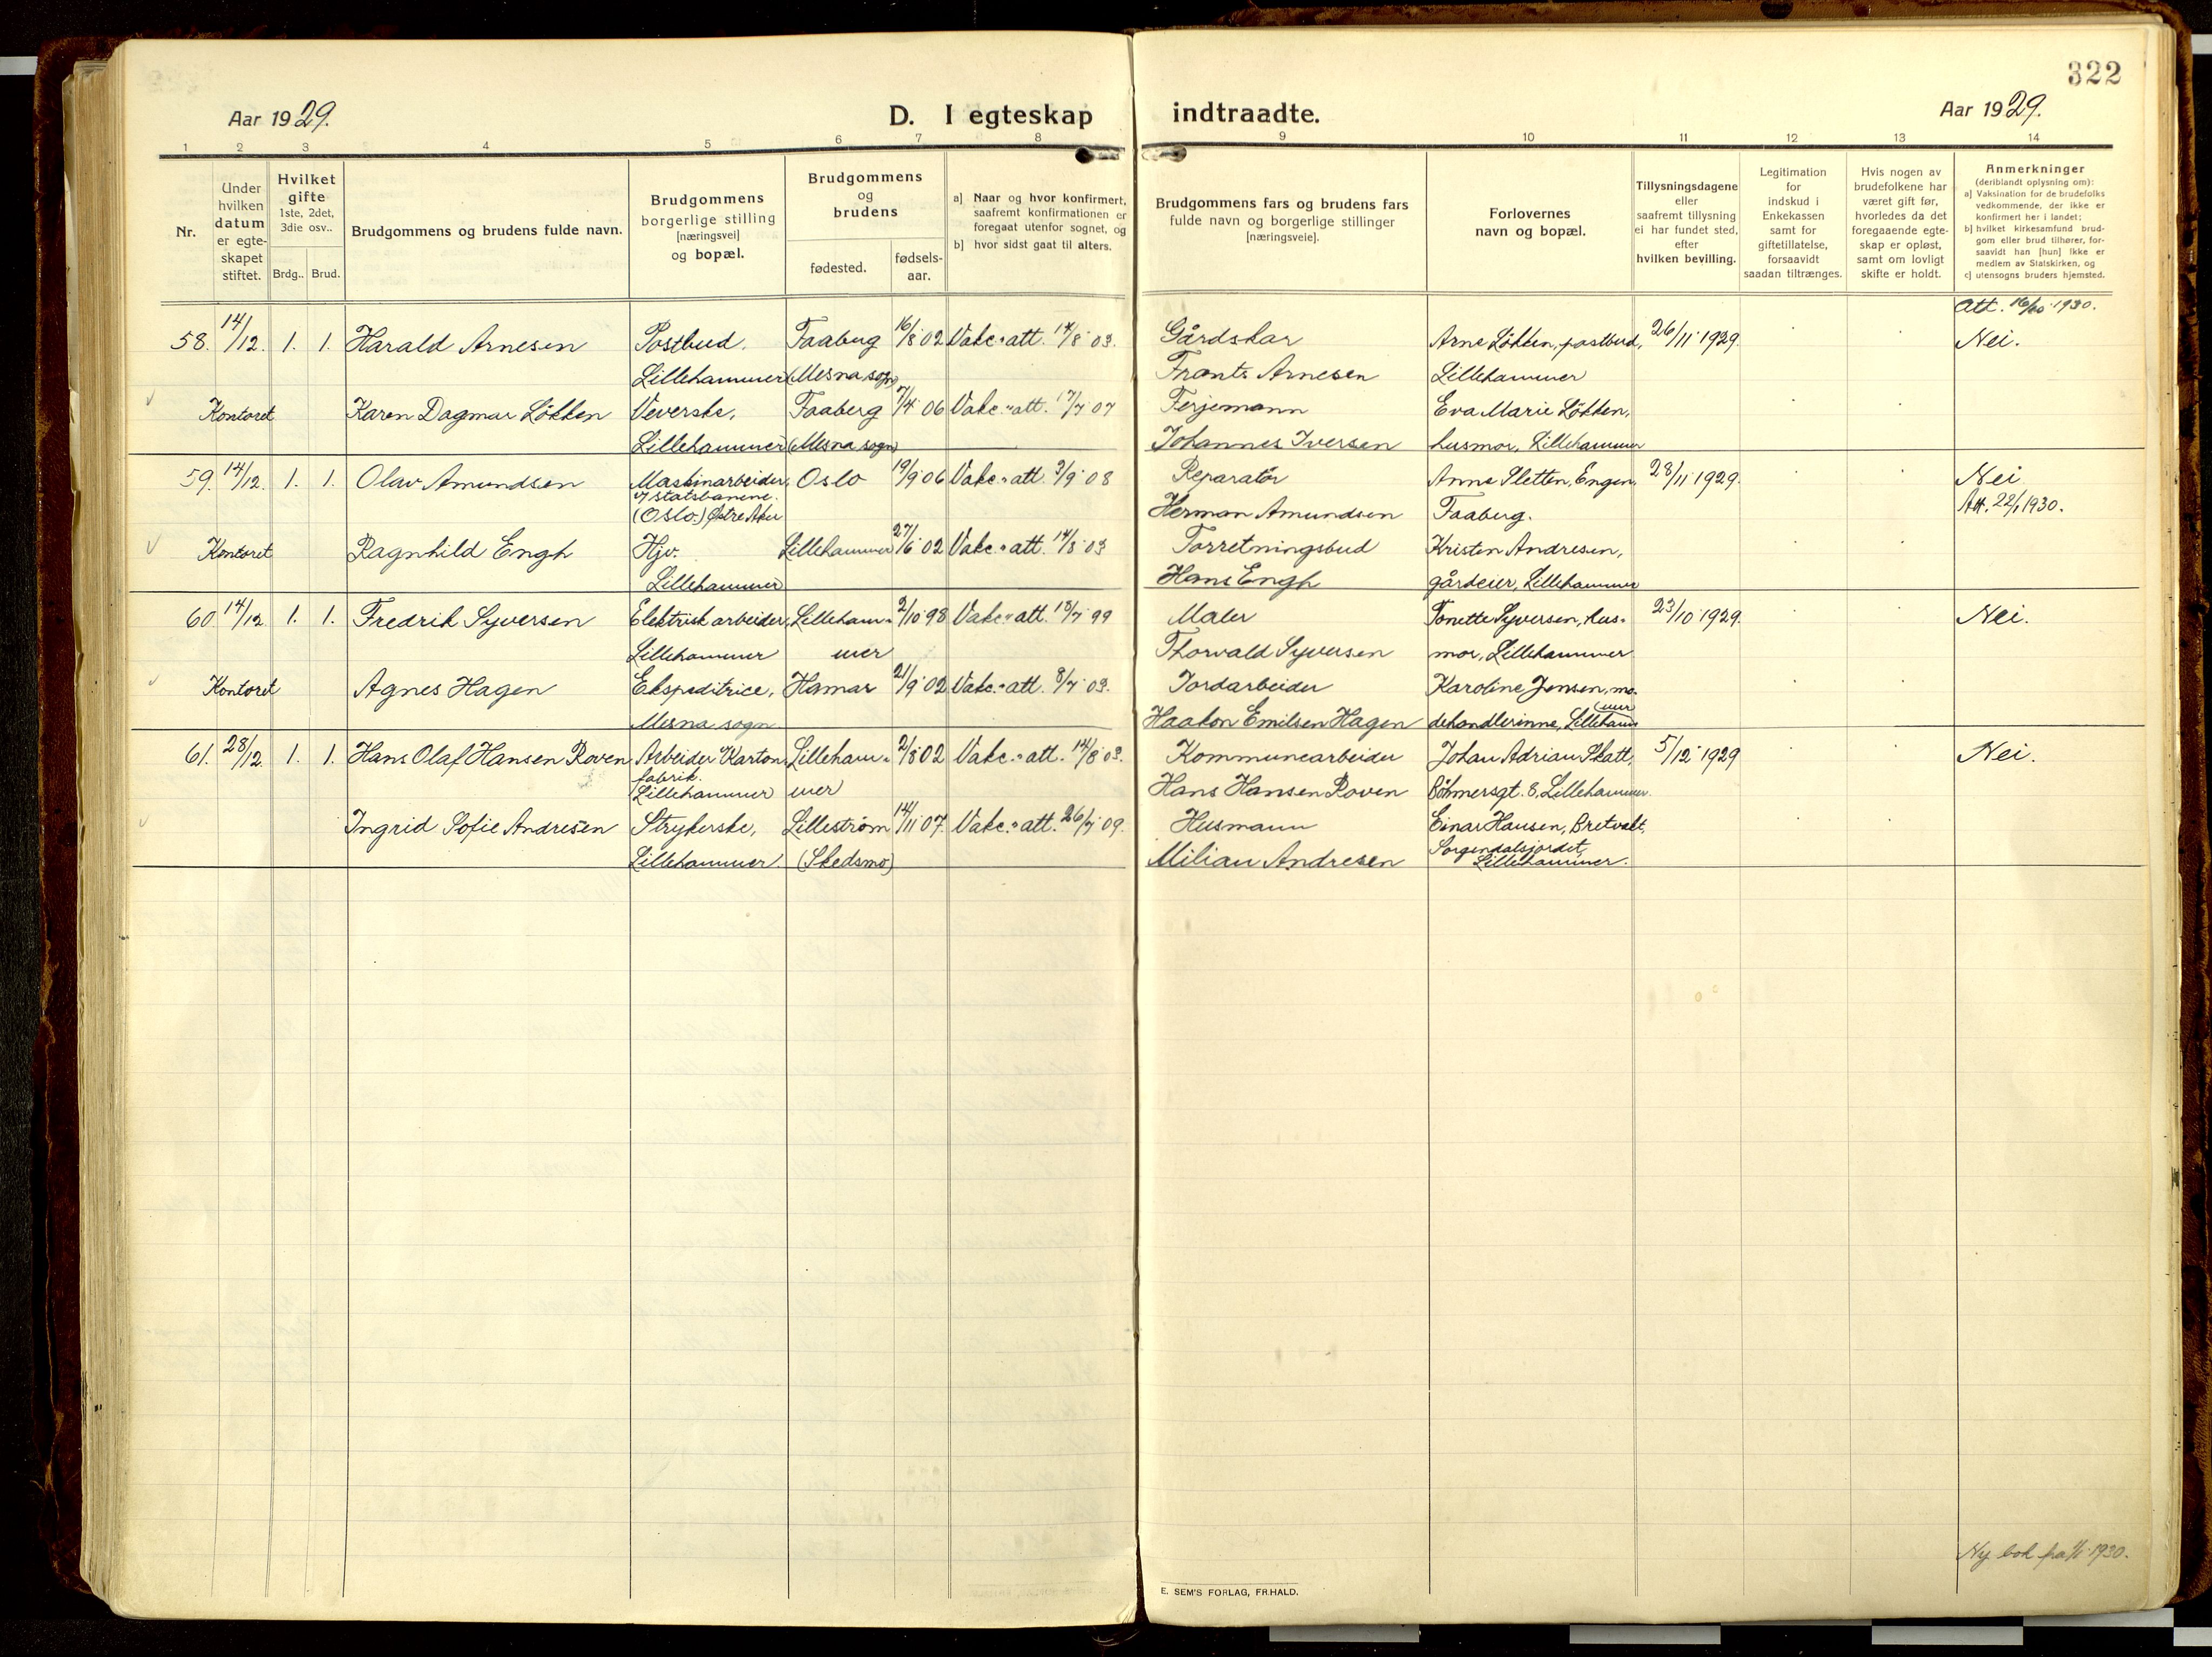 322
Aar 1929.
D. I egteskap indtraadte.
Aar 1929.
1 2 3 4 5 6 7 8 9 10 11 12 13 14
Nr.
Under hvilken datum er egteskapet stiftet.
Hvilket gifte 1ste, 2det, 3die osv..
Brdg.. Brud.
Brudgommens og brudens fulde navn.
Brudgommens borgerlige stilling [næringsvei] og bopæl.
Brudgommens og brudens
fødested.
fødselsaar.
a) Naar og hvor konfirmert, saafremt konfirmationen er foregaat utenfor sognet, og
b) hvor sidst gaat til alters.
Brudgommens fars og brudens fars fulde navn og borgerlige stillinger [næringsveie].
Forlovernes navn og bopæl.
Tillysningsdagene eller saafremt tillysning ei har fundet sted, efter hvilken bevilling.
Legitimation for indskud i Enkekassen samt for giftetillatelse, forsaavidt saadan tiltrænges.
Hvis nogen av brudefolkene har været gift før, hvorledes da det foregaaende egteskap er opløst, samt om lovligt skifte er holdt.
Anmerkninger
(deriblandt oplysning om):
a) Vaksination for de brudefolks vedkommende, der ikke er konfirmert her i landet;
b) hvilket kirkesamfund brudgom eller brud tilhører, forsaavidt han [hun] ikke er medlem av Statskirken, og
c) utensogns bruders hjemsted.
58. 14/12. 1. 1. Harald Arnesen Postbud. Faaberg 16/8 02 Vakc. att. 14/8 03. Gårdskar Arne Løkken, postbud, 26/11 1929. Nei.
Lillehammer (Mesna sogn) Frants Arnesen Lillehammer
Kontoret Karen Dagmar Løkken Veverske, Faaberg 7/4 06 Vakc. att. 17/7 07 Ferjemann Eva Marie Løkken,
Lillehammer (Mesna sogn) Johannes Iversen husmor, Lillehammer
59. 14/12. 1. 1. Olav Amundsen Maskinarbeider Oslo 19/9 06 Vakc. att. 3/9 08 Reparatør Anna Sletten, Engen, 28/11 1929. Nei
v/ statsbanene.
(Oslo.) Østre Aker Herman Amundsen Faaberg. Att. 22/1 1930.
Kontoret Ragnhild Engh Hjv. Lillehammer 27/6 02 Vakc. att. 14/8 03 Forretningsbud Kristen Andresen,
Lillehammer Hans Engh gårdeier, Lillehammer
60 14/12. 1. 1. Fredrik Syversen Elektrisk arbeider, Lilleham- 2/10 98 Vakc. att. 18/7 99 Maler Tonette Syversen, hus- 23/10 1929. Nei.
Lillehammer mer Thorvald Syversen mor, Lillehammer.
Kontoret Agnes Hagen Ekspeditrice, Hamar 21/9 02 Vakc. att. 8/7 03. Jordarbeider Karoline Jensen, mo-
Mesna sogn Haakon Emilsen Hagen dehandlerinne, Lillehammer
61. 28/12. 1. 1. Hans Olaf Hansen Roven Arbeider v/ Karton- Lilleham- 2/8 02 Vakc. att. 14/8 03. Kommunearbeider Johan Adrian Skatt, 5/12 1929 Nei.
fabrik.
Lillehammer mer Hans Hansen Roven Bøhmersgt. 8, Lillehammer.
Ingrid Sofie Andresen Strykerske, Lillestrøm 14/11 07. Vakc. att. 26/7 09. Husmann Einar Hansen, Bretvedt,
Lillehammer. (Skedsmo) Milian Andresen Sorgendalsjordet, Lillehammer.
Ny bok fra 1/1 1930.
E. SEM'S FORLAG, FR.HALD.